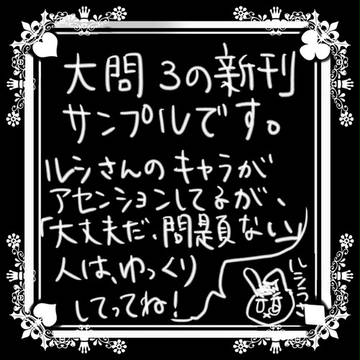 大問3の新刊
サンプルです。
ルシさんのキャラが
アセンションしてるが、
「大丈夫だ、問題ない」
人は、ゆっくり
してってね!
ルシうさ